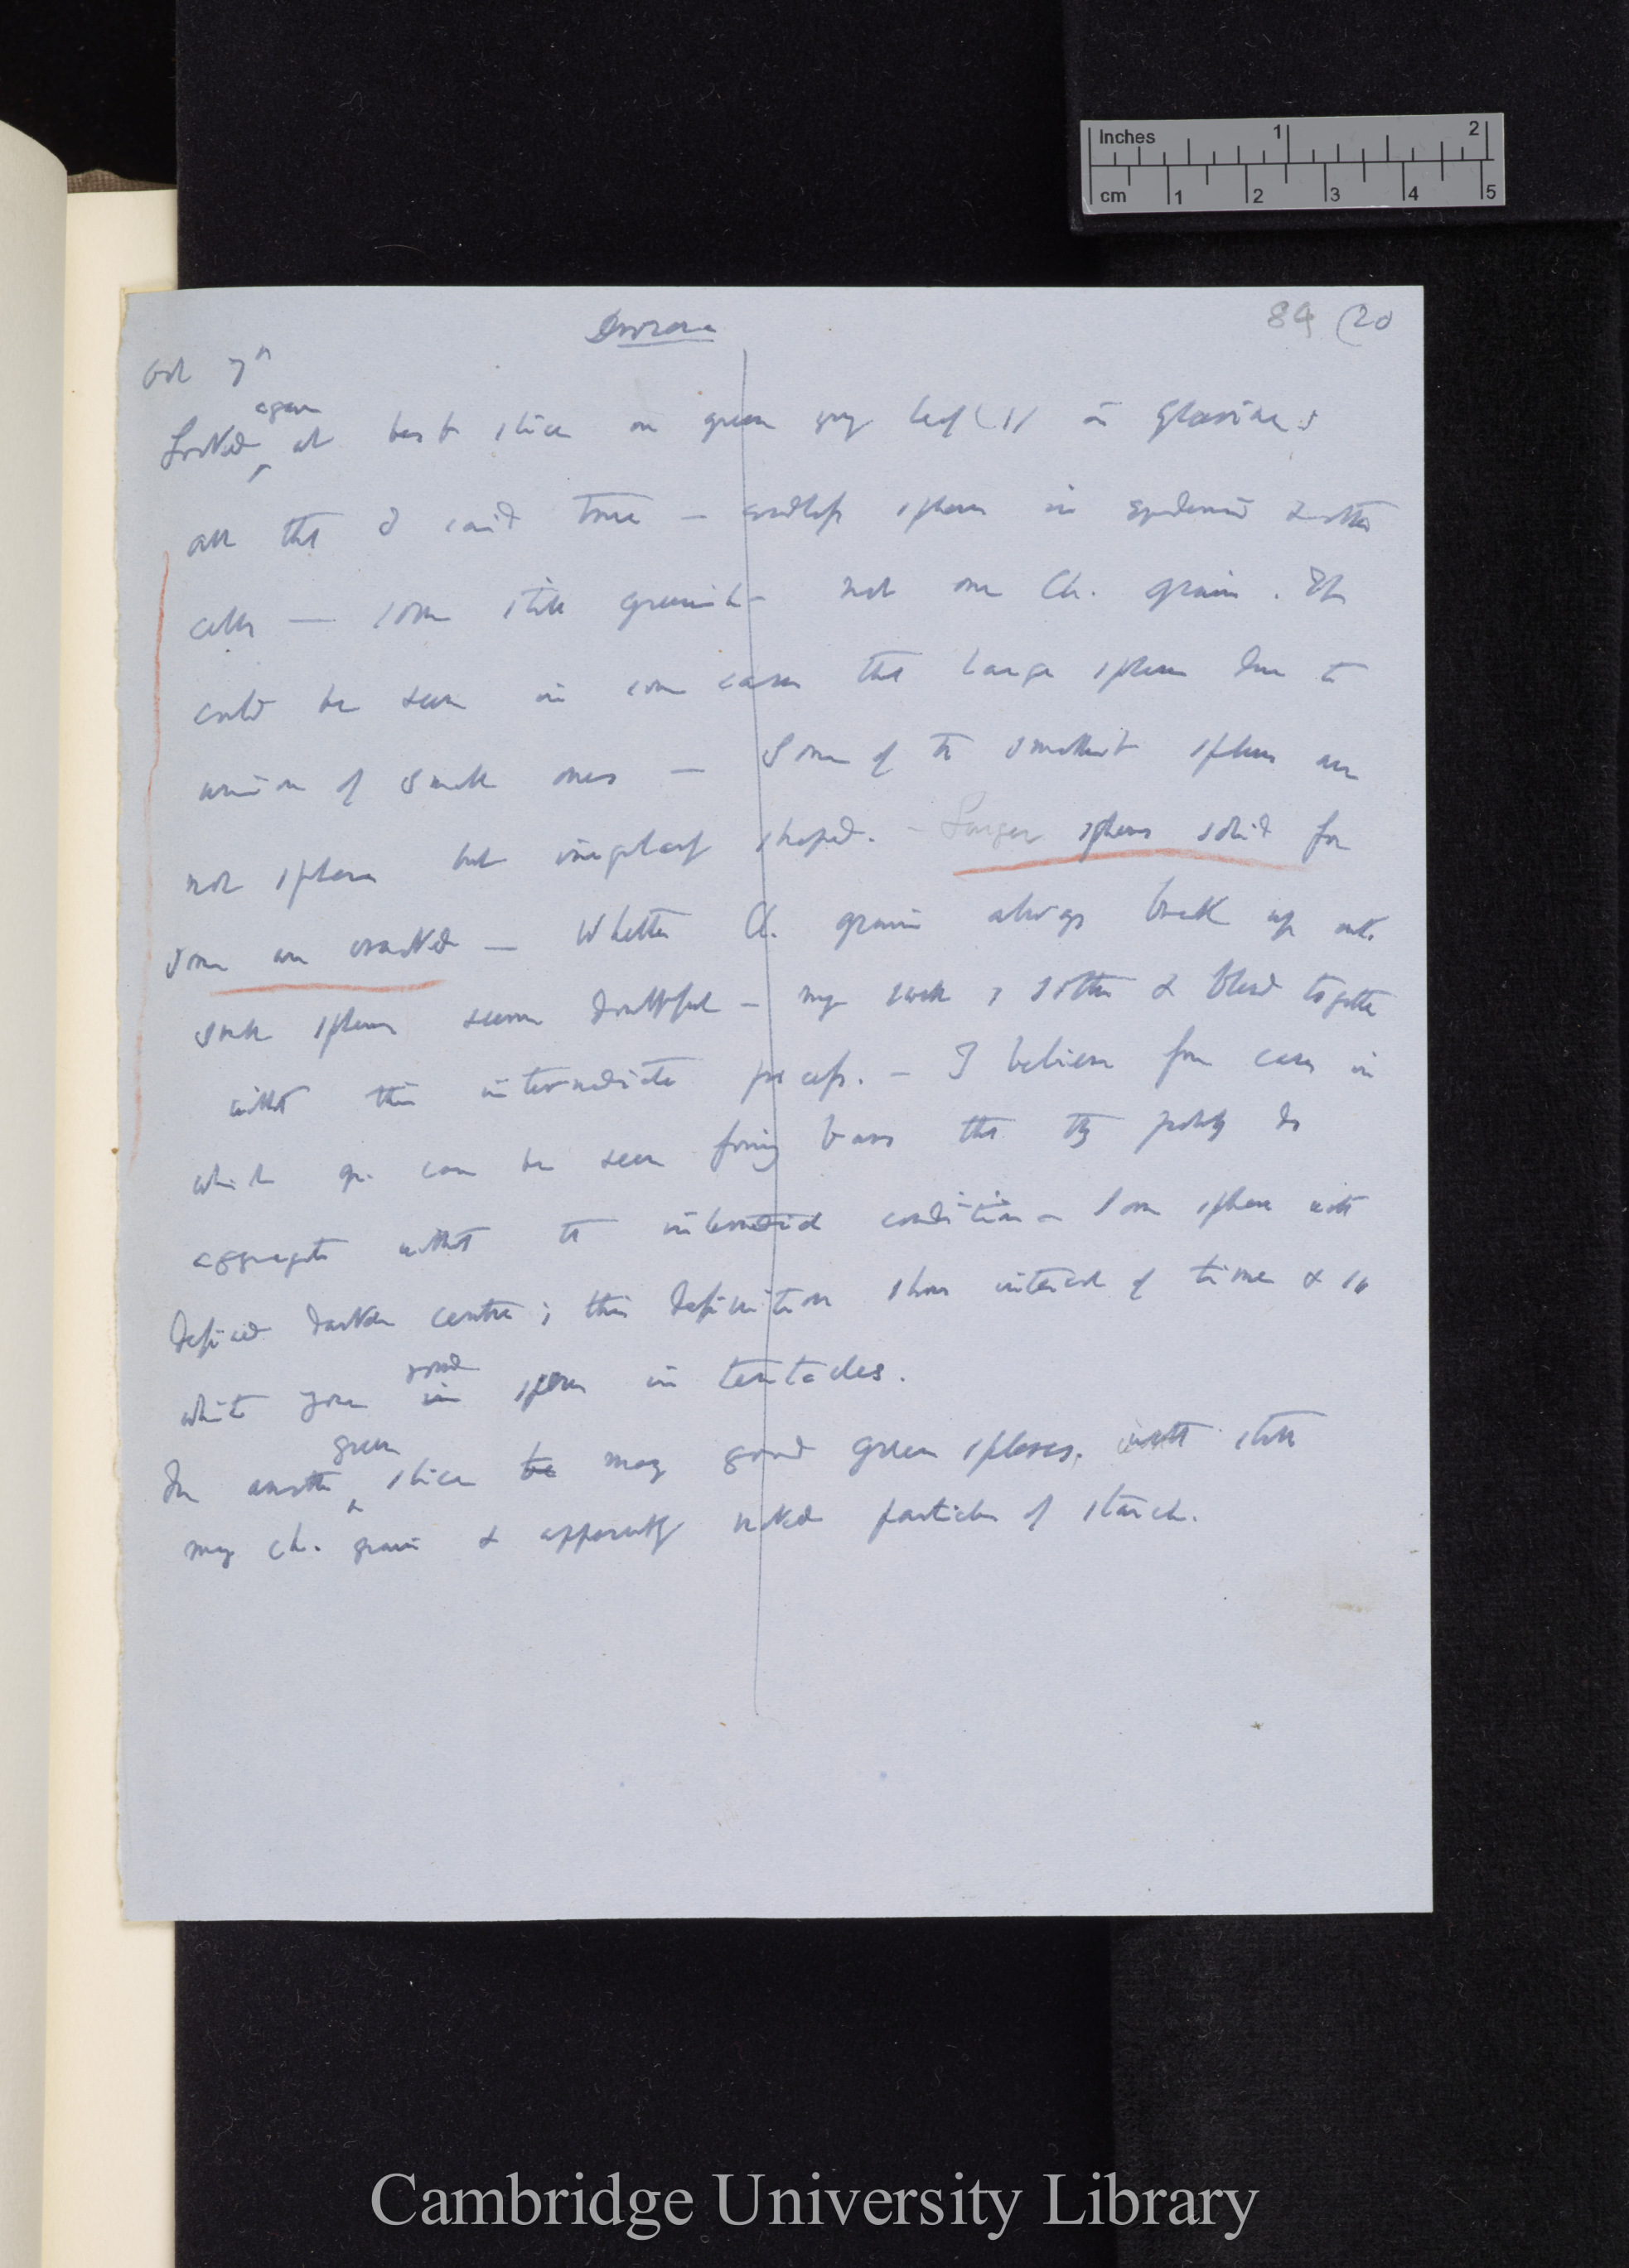 Inches 1 2
cm 1 2 3 4 5
Drosera
84 (20
Oct 7th
again
Looked at best slice on green leaf (1) in Glycerine;
all that I said true — endless spheres in epidermis & other
cells — some still greenish — not one Ch. grain. It
could be seen in some cases that large spheres due to
union of small ones — Some of the smallest spheres are
not spheres but irregularly shaped. — Larger spheres solid for
some are cracked — Whether Ch. grains always break up into
small spheres seems doubtful — may swell, soften & blend together
without this intermediate process. — I believe from cases in
which gr. can be seen forming bars that they probably do
aggregate without the intermediate condition — Some spheres with
defined darker centre; this definition shows interval of time & is
good
white in spheres in tentacles.
green
In another slice be many good green spheres, with still
many ch. grains & apparently naked particles of starch.
Cambridge University Library